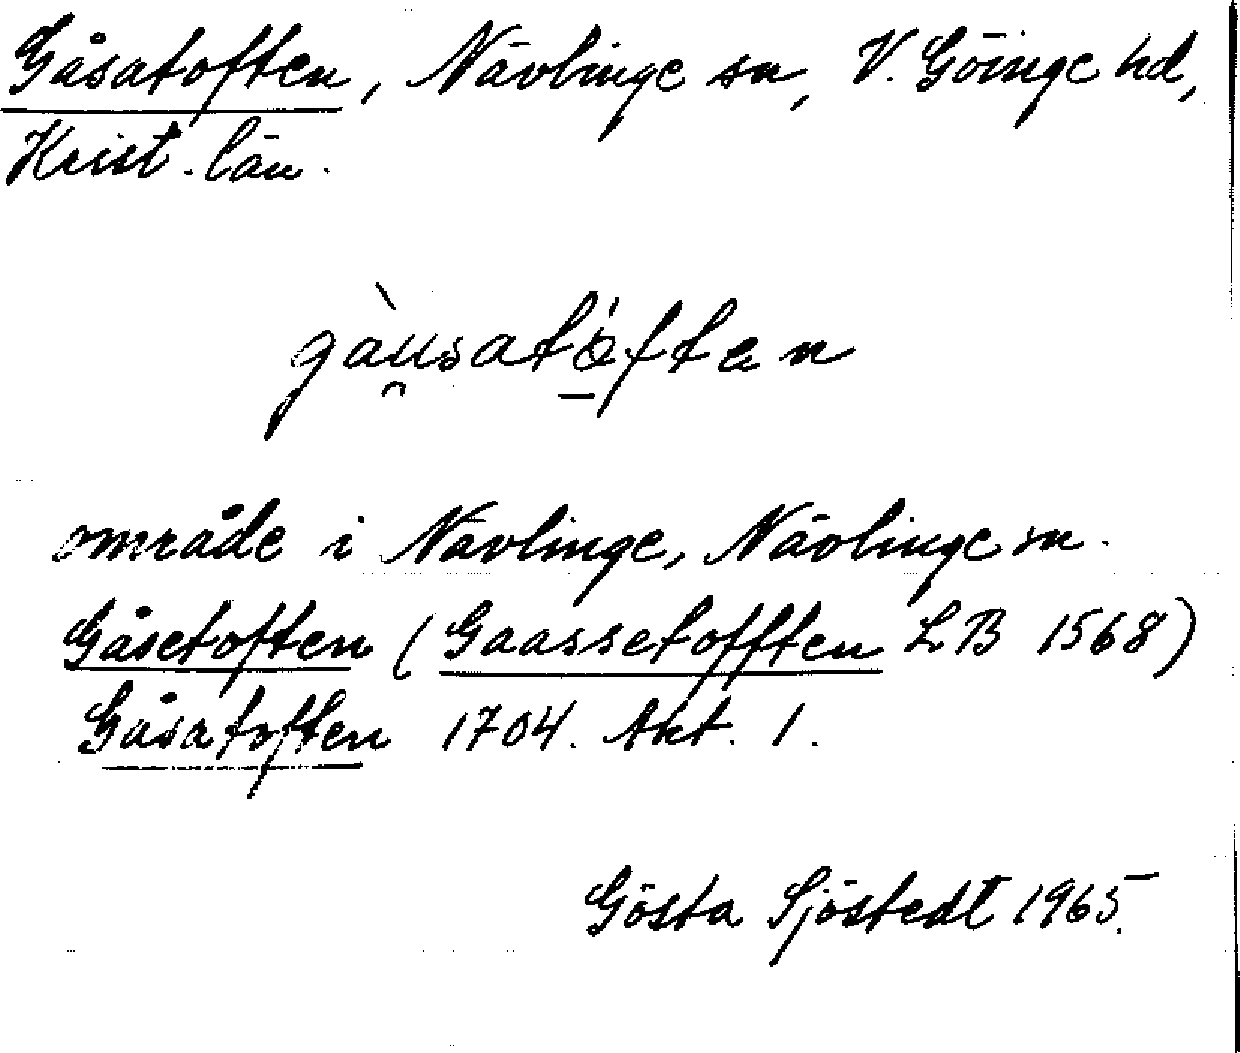 Gåsatoften, Nävlinge sn, V. Göinge hd,
Krist. län.
gàu̯satò̱ften
område i Nävlinge, Nävlinge sn.
Gåsetoften (Gaassetofften LB 1568)
Gåsatoften 1704. Akt. 1.
Gösta Sjöstedt 1965.